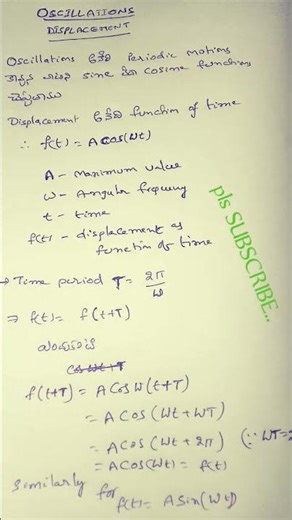 OSCILLATIONS
DISPLACEMENT
Oscillations అనేవి Periodic motions
కావున వాటిని sine or cosine functions
Displacement అనేది function of time
∴ f(t) = A cos(ωt)
A - maximum value
ω - Angular frequency
t - time
f(t) - displacement as
function of time
→ Time period T = 2π/ω
⇒ f(t) = f(t+T)
f(t+T) = A cos ω(t+T)
= A cos (ωt + ωT)
= A cos (ωt + 2π) (∵ ωT=2
= A cos(ωt) = f(t)
Similarly for f(t) = A sin(ωt)
pls SUBSCRIBE..